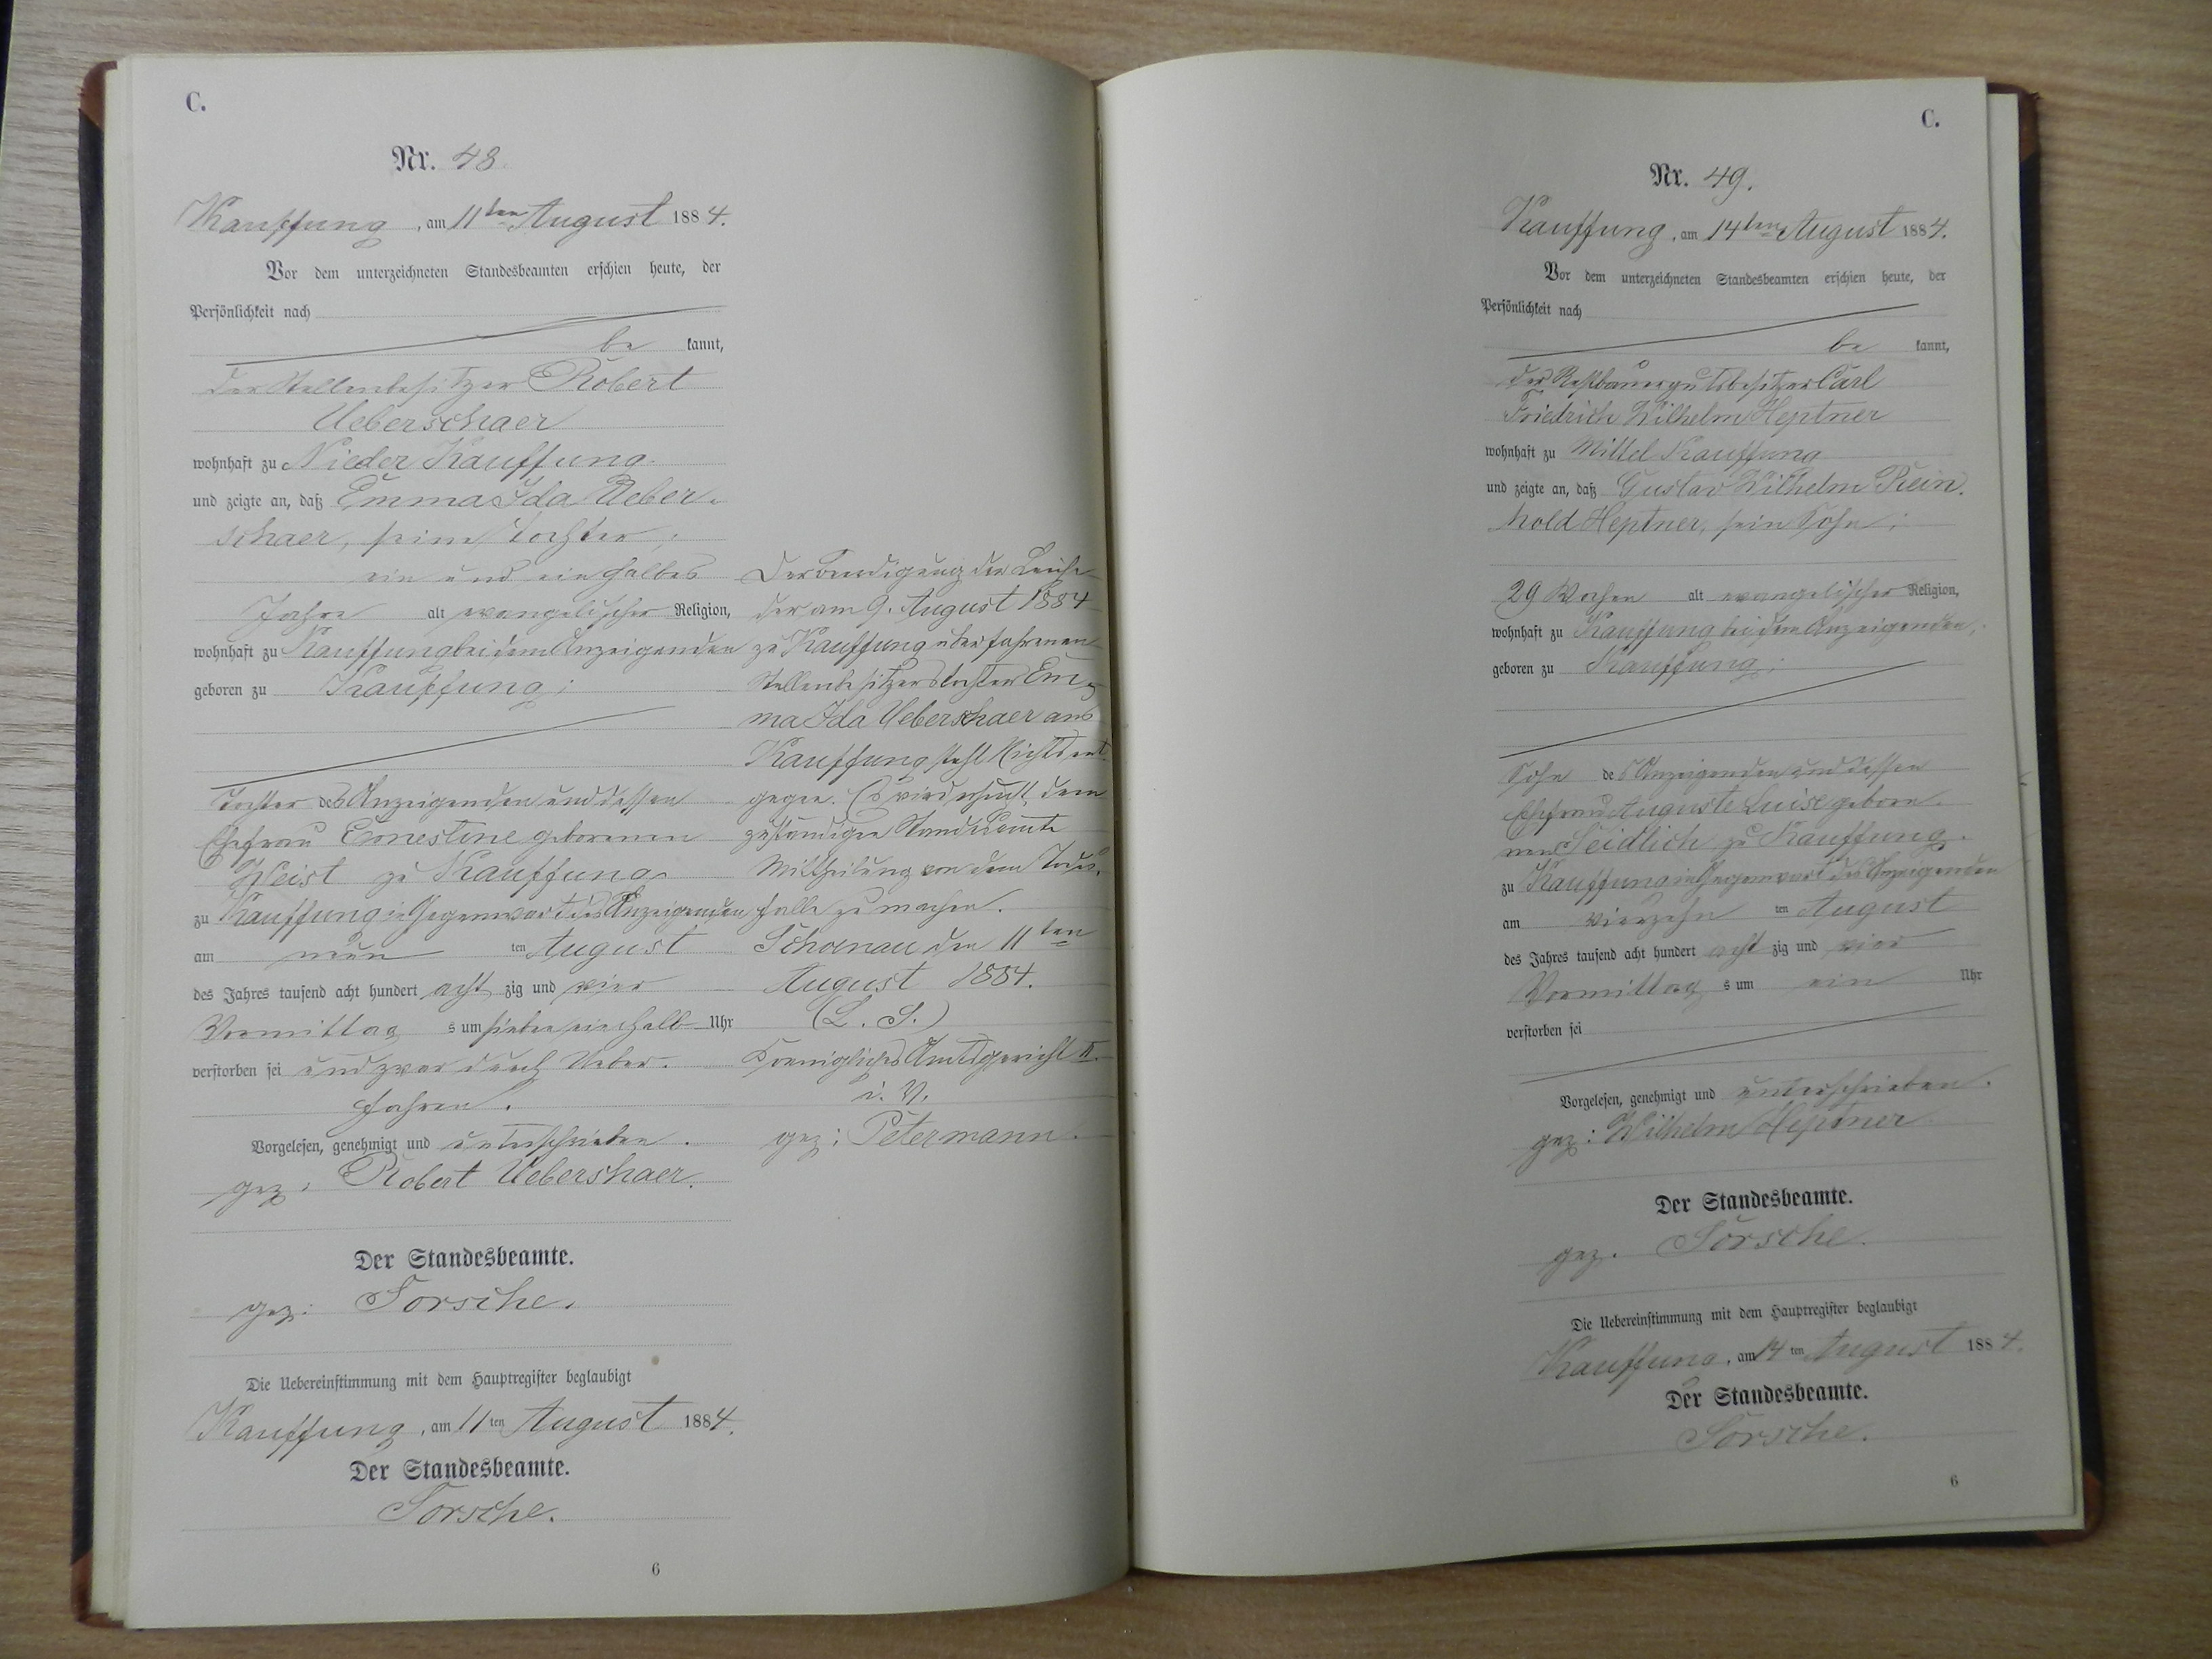 C.
Nr. 48.
Kauffung, am 11ten August 1884.
Vor dem unterzeichneten Standesbeamten erschien heute, der
Persönlichkeit nach
be kannt,
der Stellenbesitzer Robert
Ueberschaer
wohnhaft zu Nieder Kauffung
und zeigte an, daß Emma Ida Ueber-
schaer, seine Tochter,
ein und ein halbes
Jahre alt evangelischer Religion,
wohnhaft zu Kauffung bei dem Anzeigenden
geboren zu Kauffung;
Tochter des Anzeigenden und dessen
Ehefrau Ernestine geborenen
Weist zu Kauffung
zu Kauffung in Gegenwart des Anzeigenden
am neun ten August
des Jahres tausend acht hundert acht zig und vier
Vormittag s um sieben einhalb Uhr
verstorben sei und zwar durch Ueber-
fahren.
Vorgelesen, genehmigt und unterschrieben.
gez: Robert Uebershaer.
Der Standesbeamte.
gez: Sorsche.
Die Uebereinstimmung mit dem Hauptregister beglaubigt
Kauffung, am 11ten August 1884.
Der Standesbeamte.
Sorsche.
6
Der Beerdigung der Leiche
der am 9. August 1884
zu Kauffung überfahrenen
Stellenbesitzerstochter Em-
ma Ida Ueberschaer aus
Kauffung steht Nichts ent-
gegen. Es wird ersucht, dem
zuständigen Standesamte
Mittheilung von dem Todes-
falle zu machen.
Schoenau den 11ten
August 1884.
(L. S.)
Koenigliches Amtsgericht II.
i. V.
gez: Petermann.
C.
Nr. 49.
Kauffung, am 14ten August 1884.
Vor dem unterzeichneten Standesbeamten erschien heute, der
Persönlichkeit nach
be kannt,
der Restbauergutsbesitzer Carl
Friedrich Wilhelm Heptner
wohnhaft zu Mittel Kauffung
und zeigte an, daß Gustav Wilhelm Rein-
hold Heptner, sein Sohn;
29 Wochen alt evangelischer Religion,
wohnhaft zu Kauffung bei dem Anzeigenden,
geboren zu Kauffung;
Sohn des Anzeigenden und dessen
Ehefrau Auguste Luise gebore-
nen Seidlich zu Kauffung.
zu Kauffung in Gegenwart des Anzeigenden
am vierzehn ten August
des Jahres tausend acht hundert acht zig und vier
Vormittag s um ein Uhr
verstorben sei
Vorgelesen, genehmigt und unterschrieben.
gez: Wilhelm Heptner
Der Standesbeamte.
gez. Sorsche.
Die Uebereinstimmung mit dem Hauptregister beglaubigt
Kauffung, am 14ten August 1884.
Der Standesbeamte.
Sorsche.
6